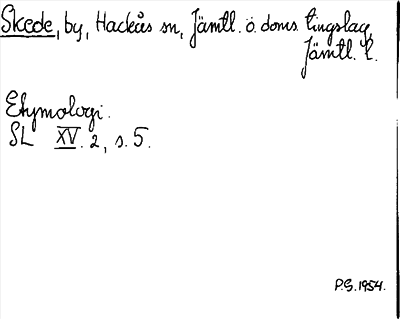 Skede, by, Hackås sn, Jämtl. ö. doms. tingslag,
Jämtl. l.
Etymologi.
SL XV. 2, s. 5.
P.S. 1954.